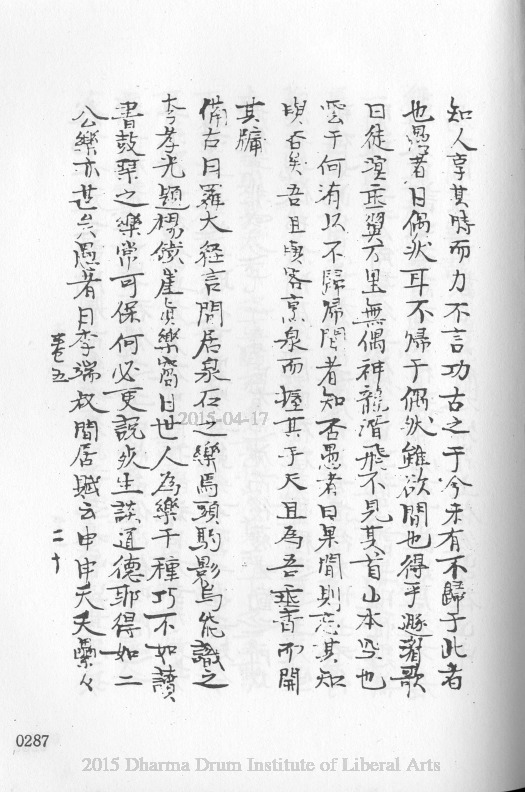 知人享其時而力不言功古之于今未有不歸于此者
也愚者曰偶然耳不歸于偶然雖欲閒也得乎遂著歌
曰徒溟垂翼万里無偶神龍潛飛不見其首山本也
雲于何有以不歸歸閒者知否愚者曰果閒則忘其知
否矣吾且烹泉而握其于天且為吾垂香而開
其牖
備古曰羅大經言閒居泉石之樂馬頭駒影烏能識之
李孝光題楊鐵崖真樂窩曰世人為樂千種巧不如讀
書鼓琴之樂常可保何必更說生談道德耶得如二
公樂亦甚矣愚者曰李端叔閒居賦云申申夭夭纍々
卷五
二十
0287
2015-04-17
2015 Dharma Drum Institute of Liberal Arts